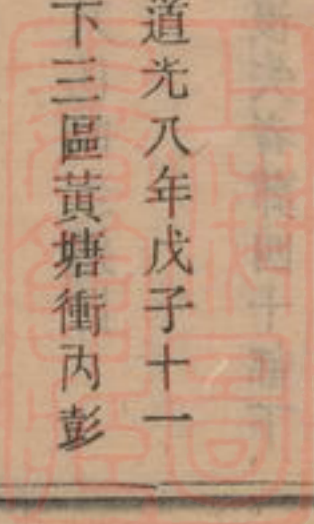 道光八年戊子十一
下三區黃塘衝內彭